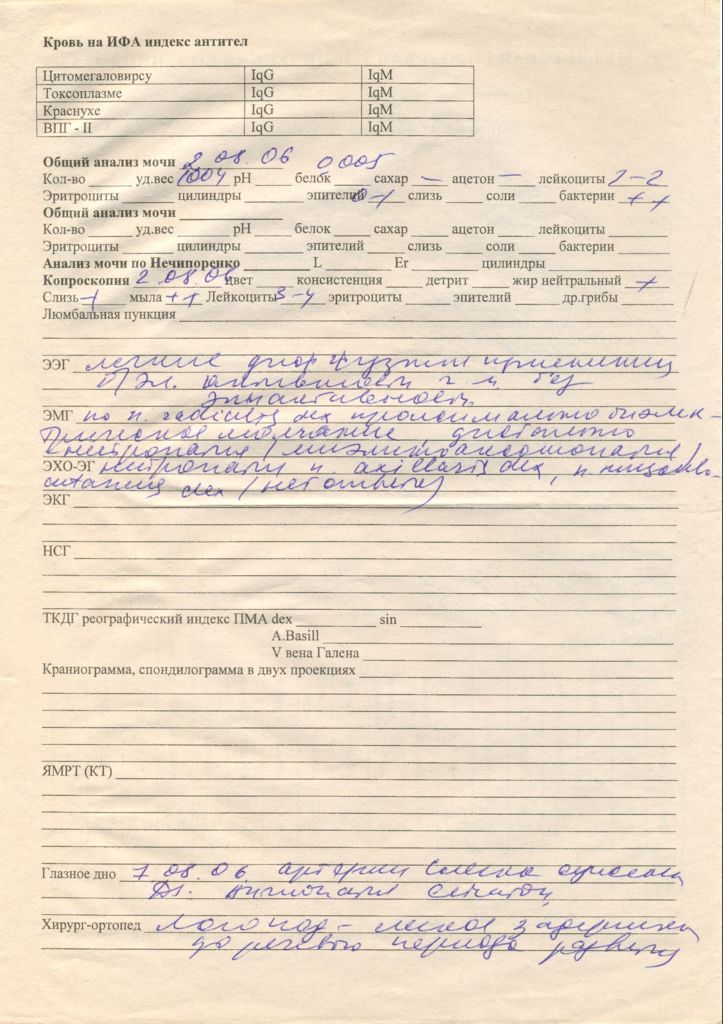 Кровь на ИФА индекс антител
Цитомегаловирсу IqG IqM
Токсоплазме IqG IqM
Краснухе IqG IqM
ВПГ - II IqG IqM
Общий анализ мочи 2.08.06 0005
Кол-во уд.вес 1004 рН белок сахар – ацетон – лейкоциты 1-2
Эритроциты цилиндры эпителий 0-1 слизь соли бактерии ++
Общий анализ мочи
Кол-во уд.вес рН белок сахар ацетон лейкоциты
Эритроциты цилиндры эпителий слизь соли бактерии
Анализ мочи по Нечипоренко L Er цилиндры
Копроскопия 2.08.06 цвет консистенция детрит жир нейтральный +
Слизь + мыла ++ Лейкоциты 3-4 эритроциты эпителий др.грибы
Люмбальная пункция
ЭЭГ легкие изменения
эл. активности г.м. без
эпиактивности
ЭМГ по n. radialis dex проксимально биэлек-
трическое молчание, дистально
нейропатия
ЭХО-ЭГ нейропатия n. axillaris dex, n. мышечно-
dex (нет ответа)
ЭКГ
НСГ
ТКДГ реографический индекс ПМА dex sin
A.Basill
V вена Галена
Краниограмма, спондилограмма в двух проекциях
ЯМРТ (КТ)
Глазное дно 7.08.06. артерии слегка сужены
Ds. Ангиопатия сетчатки
Хирург-ортопед Логопед – легкая задержка
до речевого периода развития